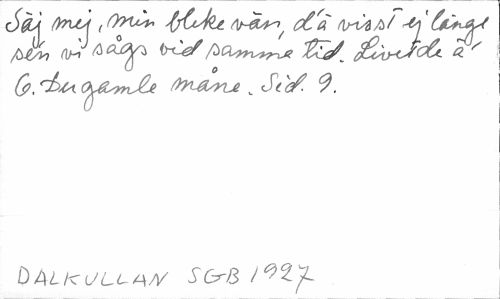 Säj mej, min bleke vän, d'ä visst ej länge
sen vi sågs vid samma tid. Livet de ä'
6. Du gamle måne. Sid. 9.
DALKULLAN SGB 1927